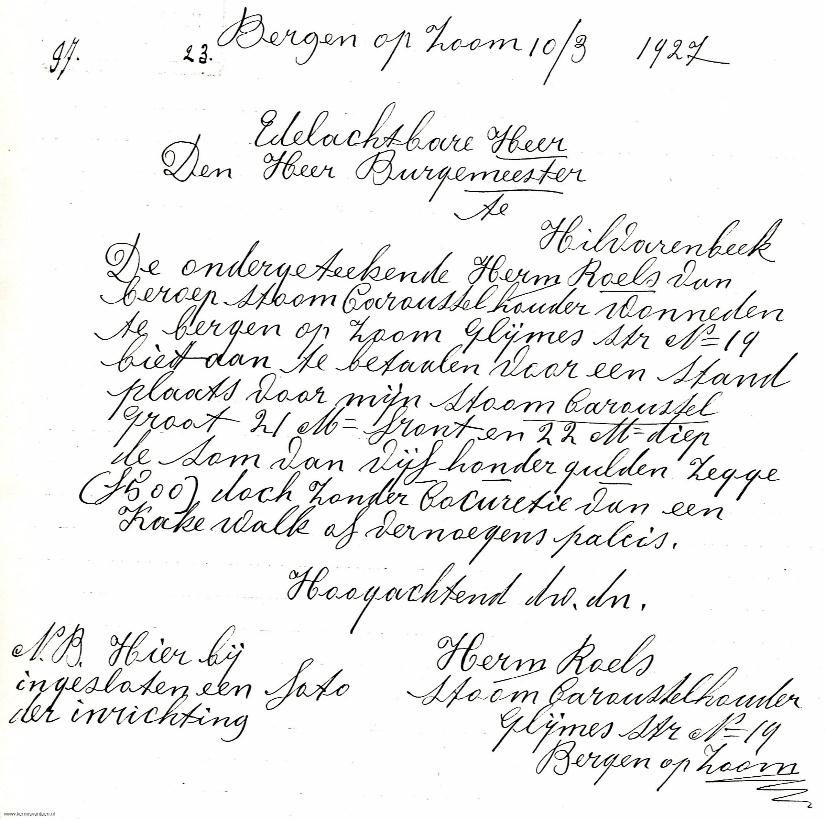 97. 23. Bergen op Zoom 10/3 1927
Edelachtbare Heer
Den Heer Burgemeester
te
Hilvarenbeek
De ondergeteekende Herm Roels van
beroep stoom Carousselhouder wonneden
te bergen op Zoom Glijmes str No 19
biet aan te betaalen voor een stand
plaats voor mijn stoom Caroussel
Groot 21 M= front en 22 M= diep
de som van vijf honder gulden zegge
(f500) doch zonder Cocuretie van een
Kake walk of vernoegens paleis.
Hoogachtend dw. dn.
N.B. Hier bij
ingesloten een foto
der inrichting
Herm Roels
stoom Carousselhouder
Glijmes str No 19
Bergen op Zoom
www.kermisvantoen.nl